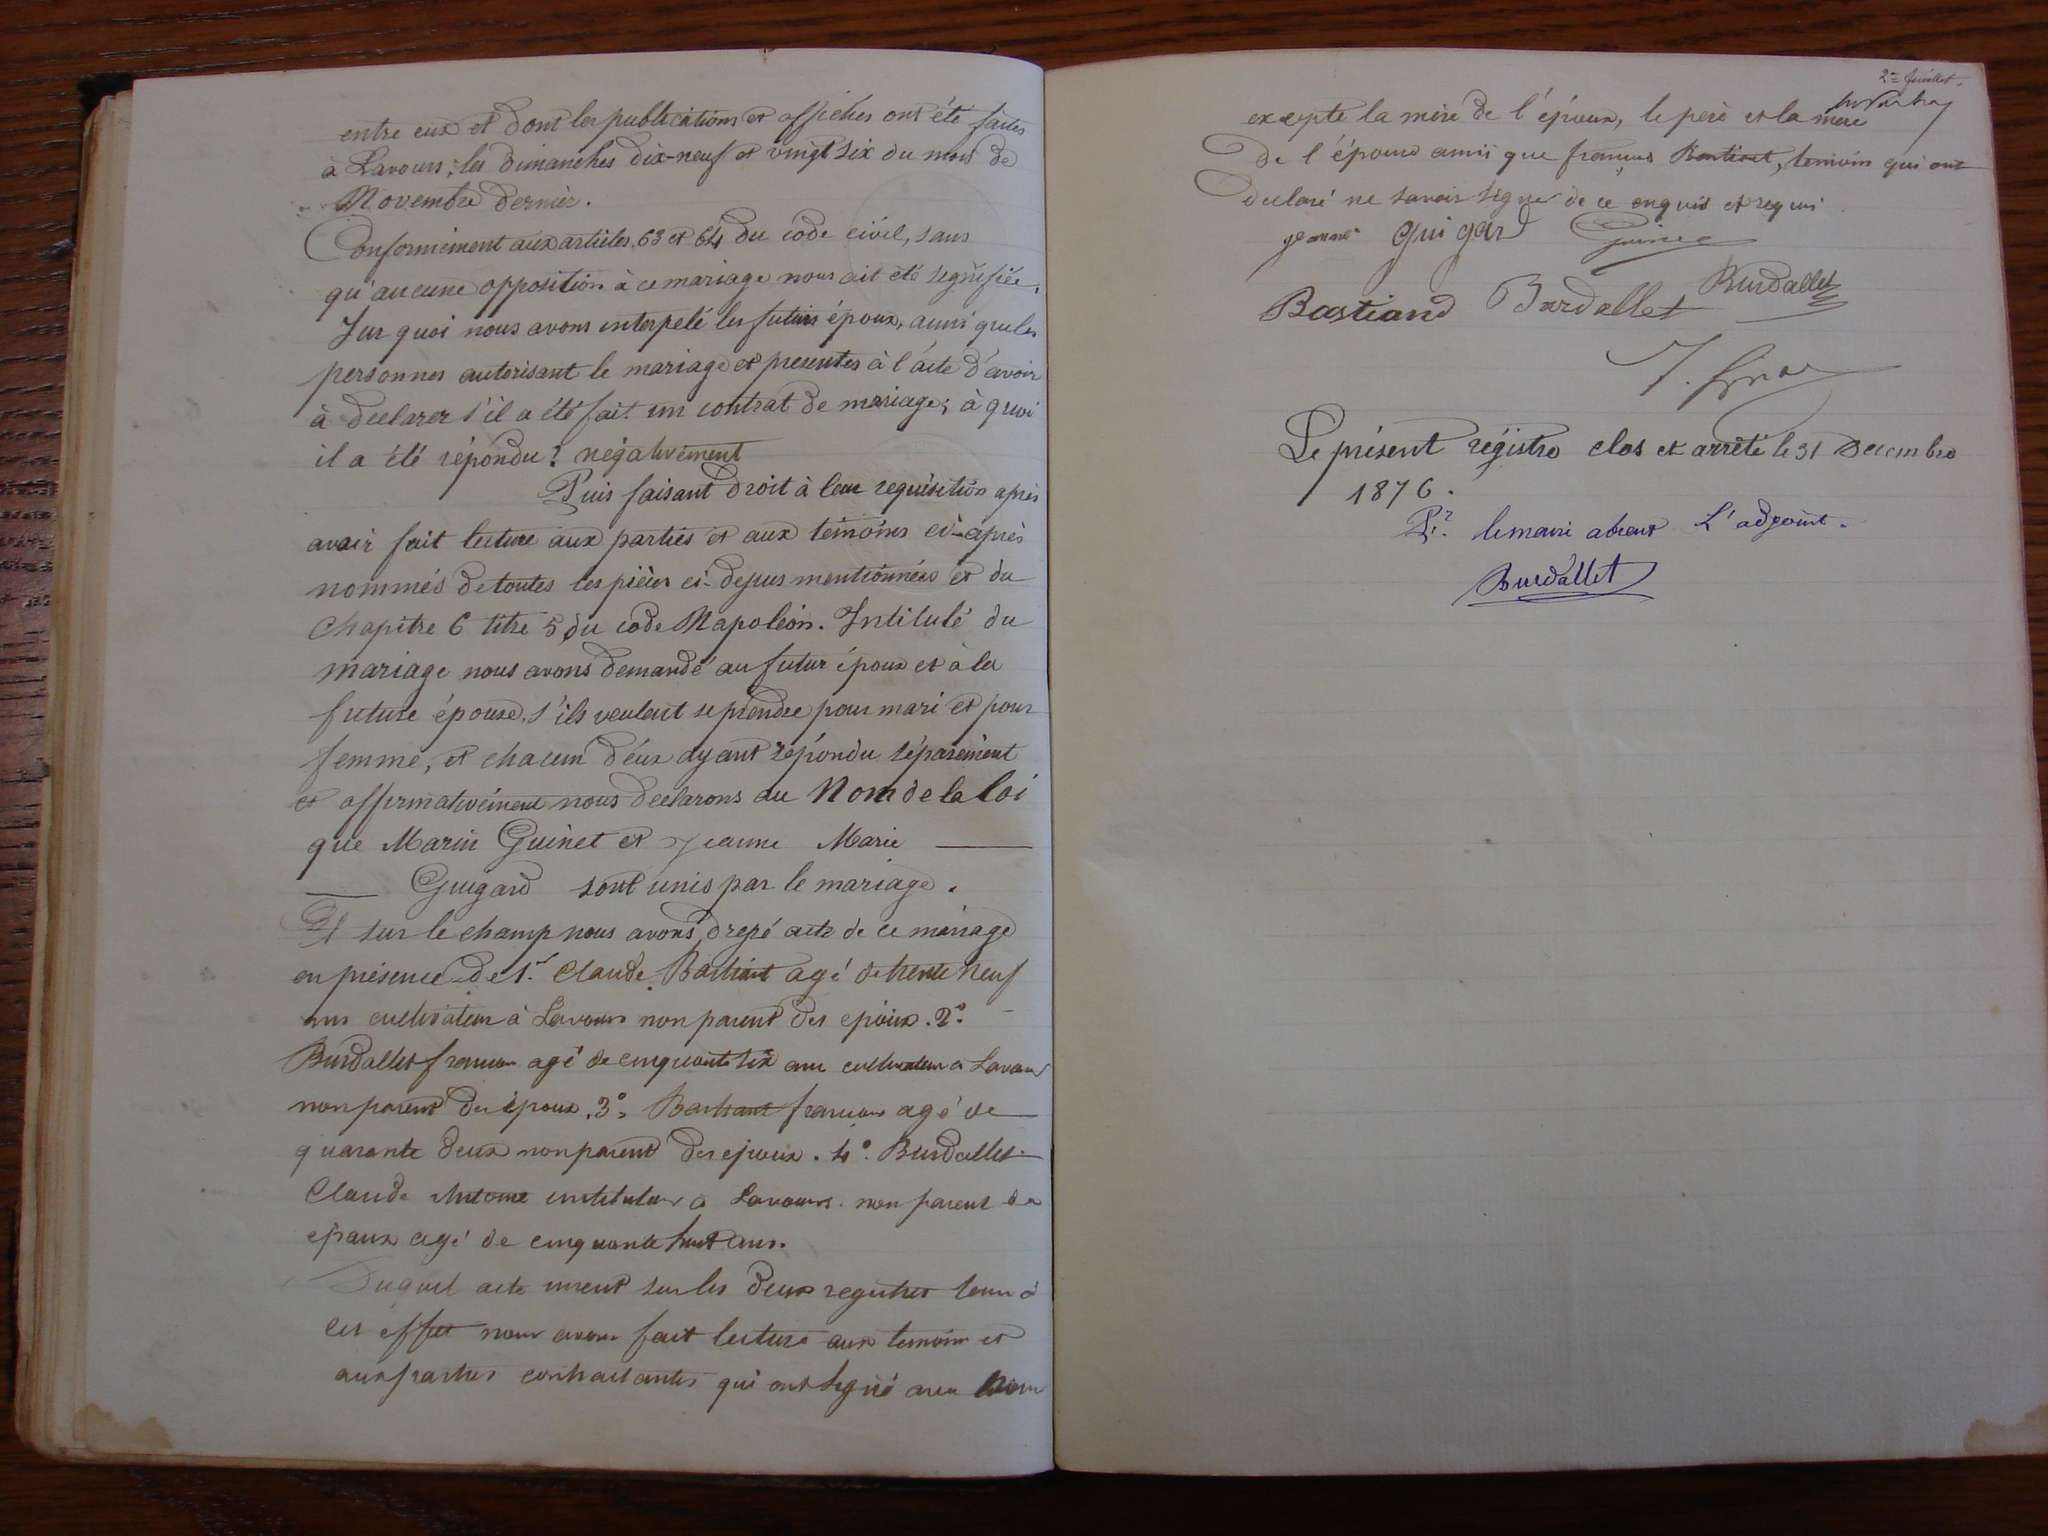 entre eux et dont les publications et affiches ont été faites
à Lavours, les dimanches dix-neuf et vingt six du mois de
Novembre dernier.
Conformément aux articles 63 et 64 du code civil, sans
qu'aucune opposition à ce mariage nous ait été segnifiée,
Sur quoi nous avons interpelé les futurs époux, ainsi que les
personnes autorisant le mariage et presentes à l'acte d'avoir
à declarer s'il a été fait un contrat de mariage; à quoi
il a été répondu: négativement
Puis faisant droit à leur requisition après
avoir fait lecture aux parties et aux témoins ci-après
nommés de toutes les pièces ci-depus mentionnées et du
Chapitre 6 titre 5 du code Napoléon. Intitulé du
mariage nous avons demandé au futur époux et à la
future épouse, s'ils veulent se prendre pour mari et pour
femme, et chacun d'eux ayant répondu séparément
et affirmativement nous declarons au Nom de la loi
que Marin Guinet et Jeanne Marie
Guigard sont unis par le mariage.
Et sur le champ nous avons drepé acte de ce mariage
en présence de 1.º Claude Bastiant agé de trente neuf
ans cultivateur à Lavours non parent des epoux. 2.º
Burdallet francois agé de cinquante six ans cultivateur à Lavours
non parent des époux. 3.º Bastiant francois agé de
quarante deux non parent des epoux. 4.º Burdallet
Claude Antoine instituteur à Lavours non parent des
epoux agé de cinquante huit ans.
Duquel acte inscrit sur les deux registres tenu à
cet effet nous avons fait lecture aux temoins et
aux parties contractantes qui ont signé avec nous
2me feuillet
excepte la mère de l'époux, le père et la mère
de l'épouse ainsi que francois Bastiant, temoin qui ont
declaré ne savoir signer de ce enquis et requis
jeanne Guigard Guinet
Bastiand Burdallet Burdallet
Le présent régistre clos et arrêté le 31 Decembre
1876.
Pr. le maire absent L'adjoint.
Burdallet